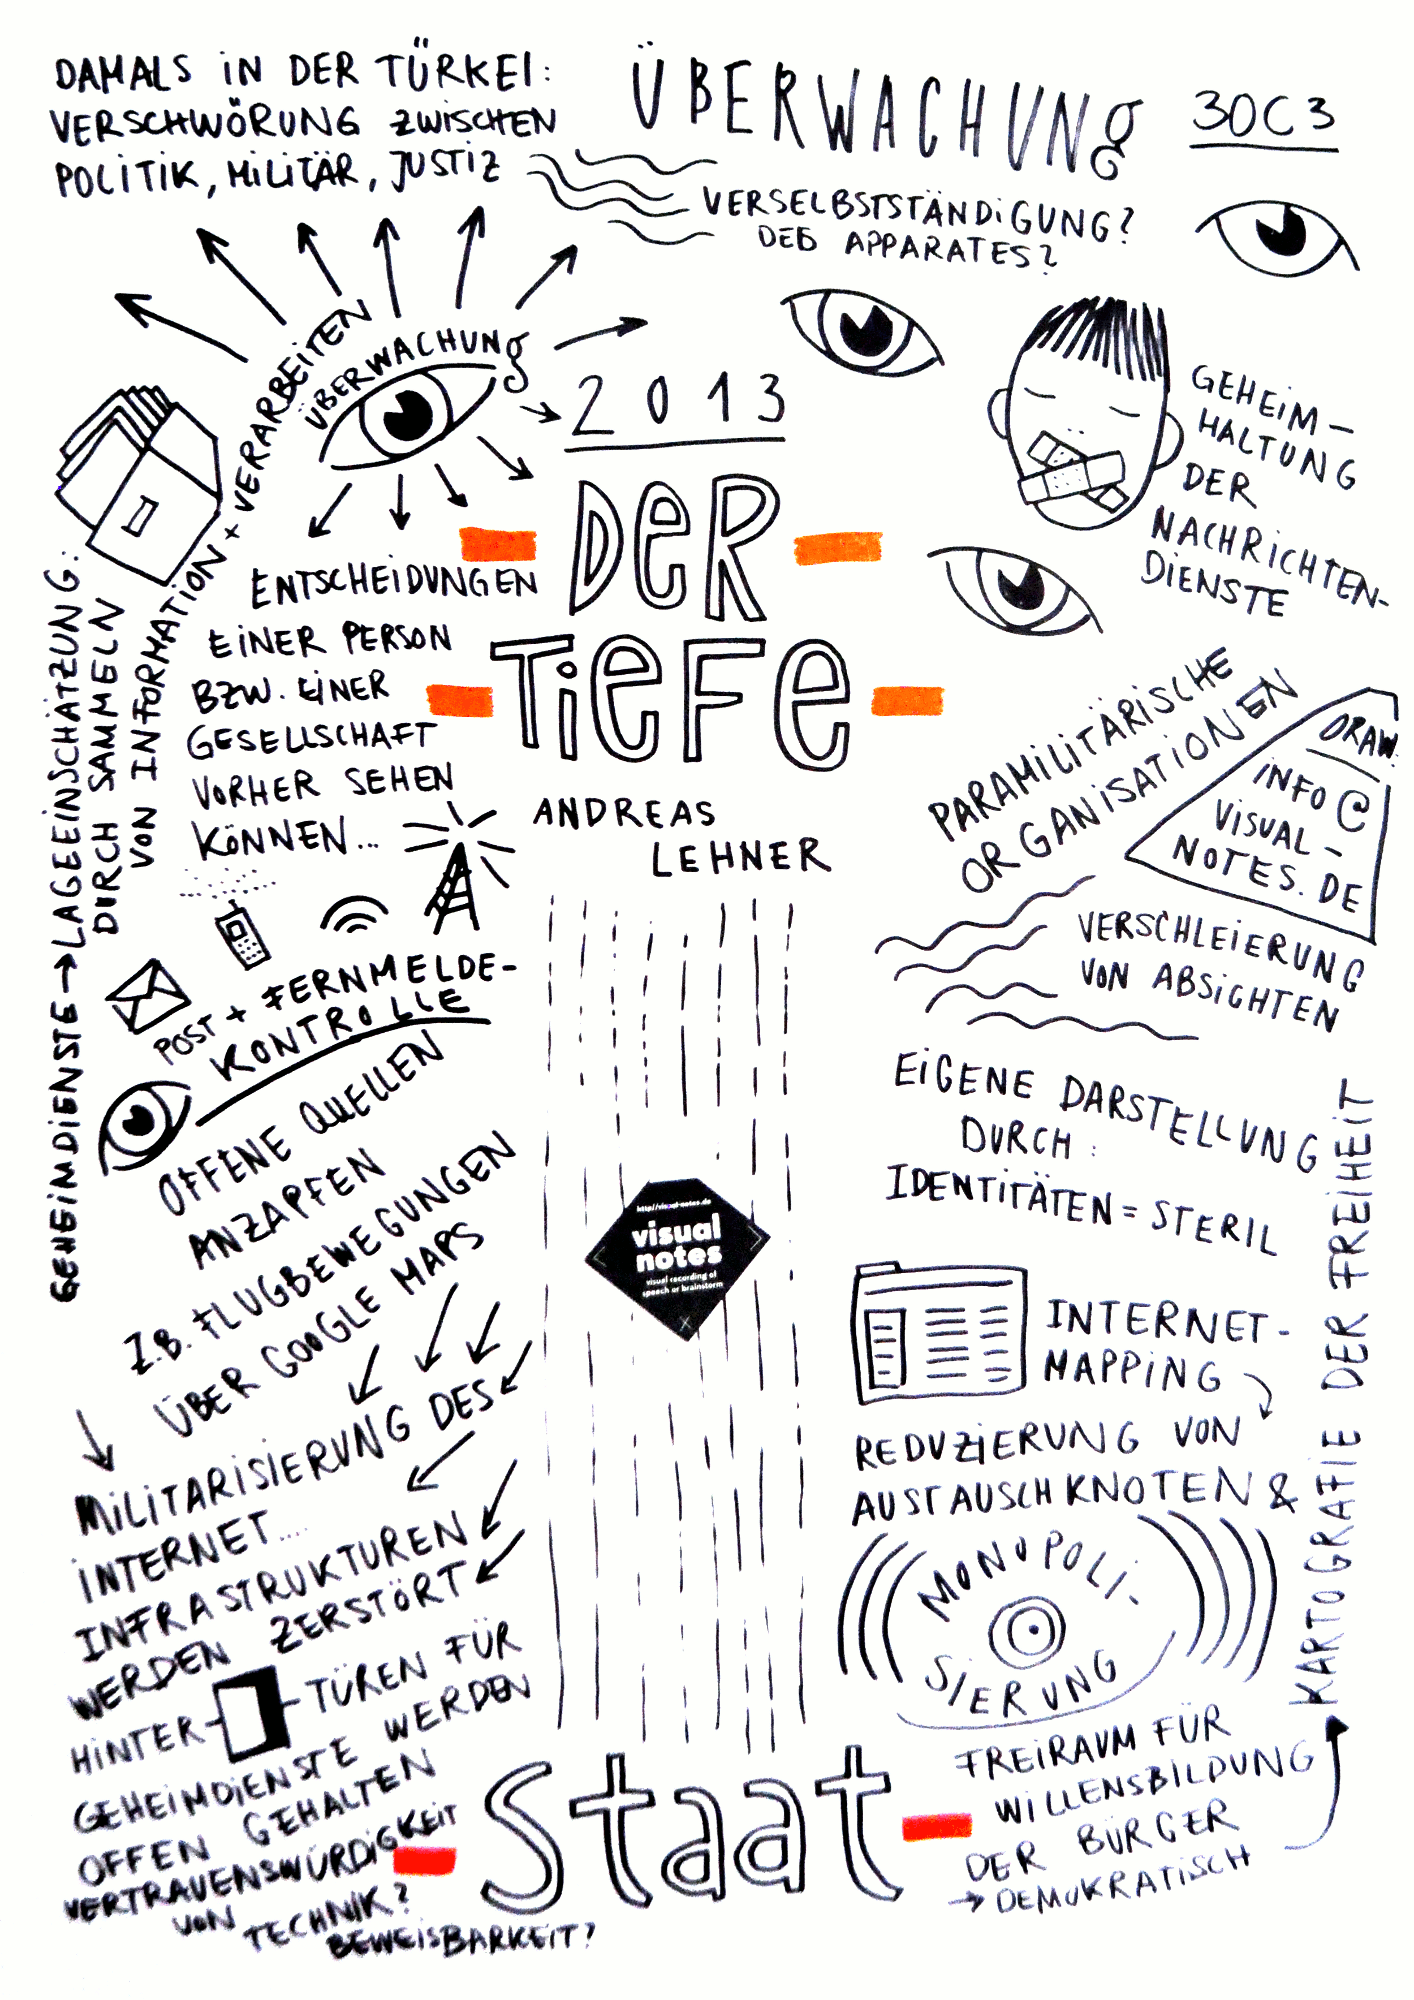 DAMALS IN DER TÜRKEI:
VERSCHWÖRUNG ZWISCHEN
POLITIK, MILITÄR, JUSTIZ
ÜBERWACHUNG
30C3
VERSELBSTSTÄNDIGUNG?
DES APPARATES?
ÜBERWACHUNG
2013
DER
TIEFE
ANDREAS
LEHNER
GEHEIM-
HALTUNG
DER
NACHRICHTEN-
DIENSTE
GEHEIMDIENSTE → LAGEEINSCHÄTZUNG:
DURCH SAMMELN
VON INFORMATION + VERARBEITEN
ENTSCHEIDUNGEN
EINER PERSON
BZW. EINER
GESELLSCHAFT
VORHER SEHEN
KÖNNEN...
POST + FERNMELDE-
KONTROLLE
OFFENE QUELLEN
ANZAPFEN
Z.B. FLUGBEWEGUNGEN
ÜBER GOOGLE MAPS
MILITARISIERUNG DES
INTERNET....
INFRASTRUKTUREN
WERDEN ZERSTÖRT
HINTER-TÜREN FÜR
GEHEIMDIENSTE WERDEN
OFFEN GEHALTEN
VERTRAUENSWÜRDIGKEIT
VON TECHNIK?
BEWEISBARKEIT?
http://visual-notes.de
visual
notes
visual recording of
speech or brainstorm
Staat
PARAMILITÄRISCHE
ORGANISATIONEN
DRAW.
INFO@
VISUAL-
NOTES.DE
VERSCHLEIERUNG
VON ABSICHTEN
EIGENE DARSTELLUNG
DURCH:
IDENTITÄTEN = STERIL
INTERNET-
MAPPING
REDUZIERUNG VON
AUSTAUSCHKNOTEN &
MONOPOLI-
SIERUNG
FREIRAUM FÜR
WILLENSBILDUNG
DER BÜRGER
→ DEMOKRATISCH
KARTOGRAFIE DER FREIHEIT